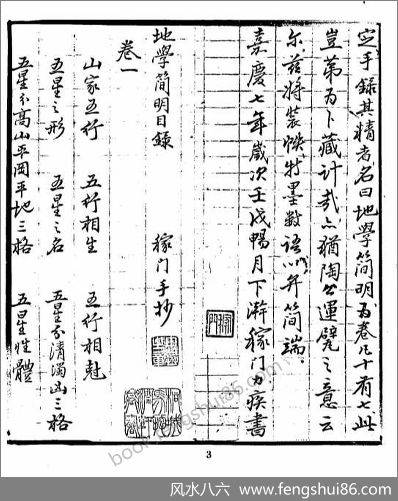 定手錄其精者名曰地學簡明為卷凡十有七此
豈第為卜藏計哉亦猶陶公運甓之意云
尔茲將裝帙特墨數語以弁簡端
嘉慶七年歲次壬戌暢月下澣稼門力疾書
地學簡明目錄 稼門手抄
卷一
山家五行 五行相生 五行相尅
五星之形 五星之名 五星分清濁凶三格
五星分高山平岡平地三格 五星性體
3
book.fengshui86.com
风水八六 www.fengshui86.com